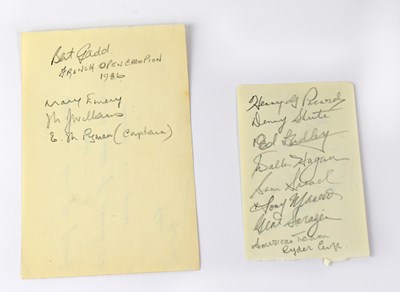 Bert Gadd
FRENCH OPEN CHAMPION
1936
Mary Emery
Williams
E. M. Pyman (Captain)
Henry G Picard
Denny Shute
Ed Dudley
Walter Hagen
Sam Snead
Tony Manero
Gene Sarazen
American Team
Ryder Cup